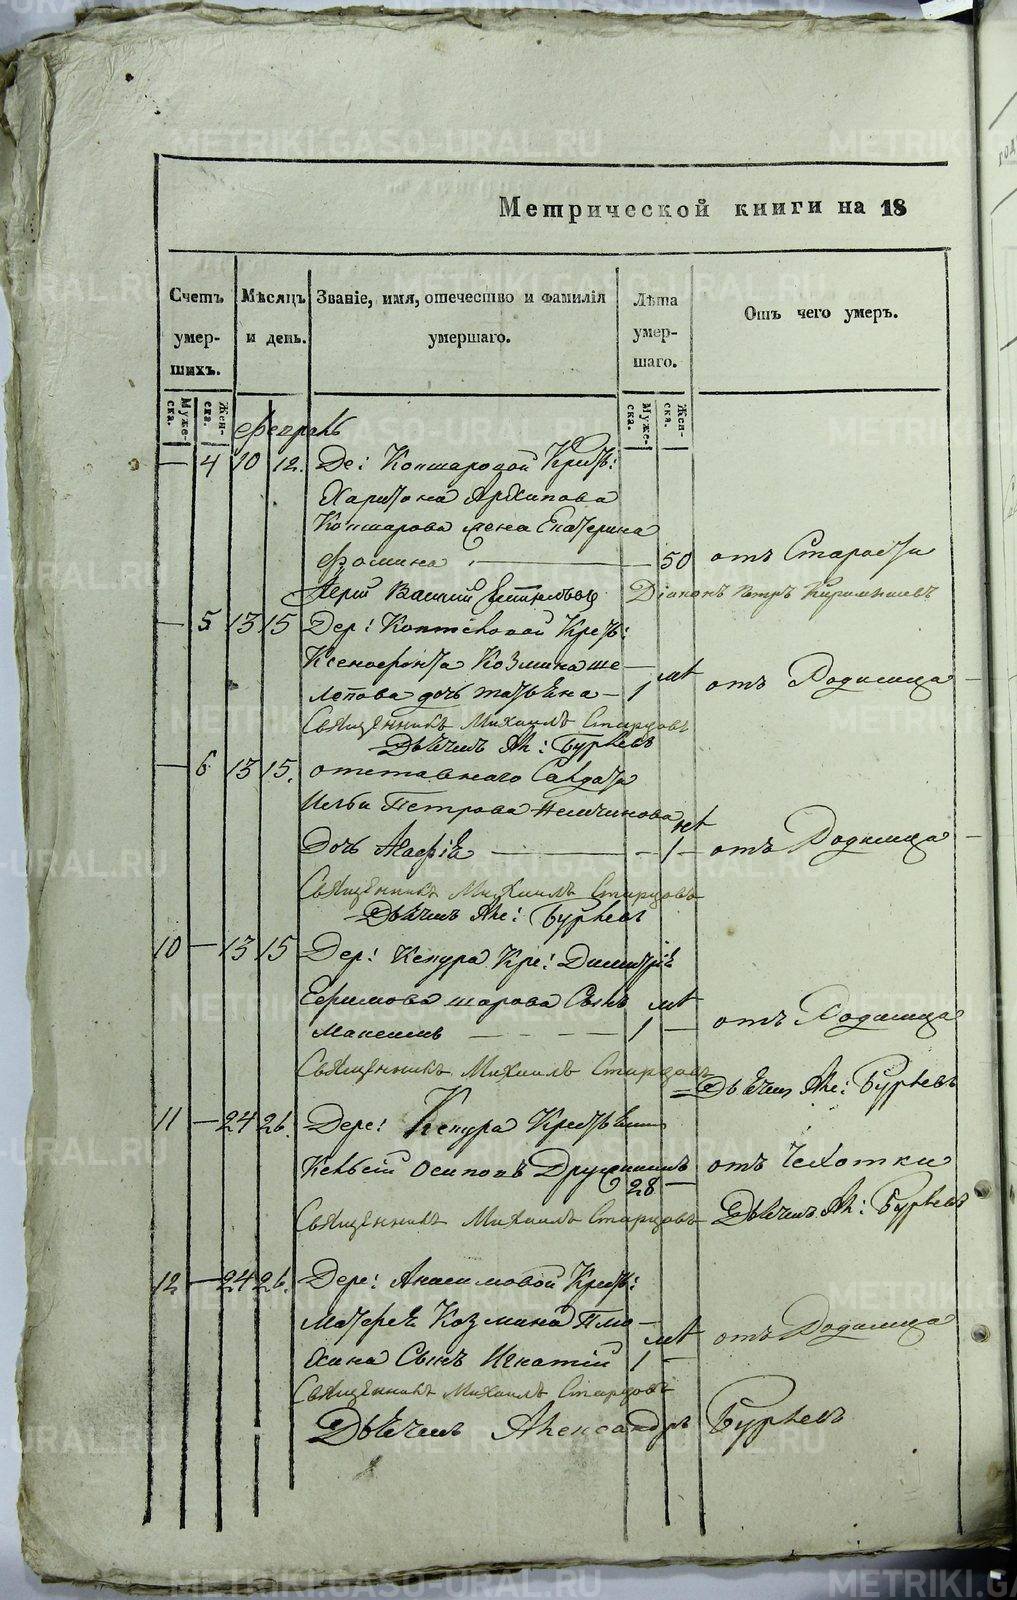 METRIKI.GASO-URAL.RU
Метрической книги на 18
Счетъ умер- шихъ.
Мѣсяцъ и день.
Званіе, имя, отечество и фамилія умершаго.
Лѣта умер- шаго.
Отъ чего умеръ.
Муже- ска.
Жен- ска.
Муже- ска.
Жен- ска.
Февраль
— 4 10 12. Де: Копшаровой Крест:
Харитона Архипова
Копшарова жена Екатерина
Фомина — 50 отъ Старости
Іерей Василий Діаконъ Петръ
— 5 13 15 Дер: Коптѣловой Крест:
Ксенофонта Козмина ше—
лепова дочь Татьяна — 1 мѣ отъ Родимца —
Священникъ Михаилъ Старцовъ
Дьячекъ Ал: Бурлевъ
— 6 13 15. отставнаго Салдата
Ильи Петрова Немчинова
Дочь Агафія — 1 — нѣ отъ Родимца —
Священникъ Михаилъ Старцовъ
Дьячекъ Але: Бурлевъ
10 — 13 15 Дер: Кепура Кре: Димитрія
Ефимова шарова Сынъ
Максимъ — — — 1 — мѣ отъ Родимца
Священникъ Михаилъ Старцовъ
Дьячекъ Але: Бурлевъ
11 — 24 26. Дере: Кепура Крестьянинъ
Осиповъ Дружининъ 28 — отъ Чехотки
Священникъ Михаилъ Старцовъ Дьячекъ Ал: Бурлевъ
12 — 24 26. Дере: Анисимовой Крест:
Матфея Козмина Пло—
хина Сынъ Игнатій 1 — мѣ отъ Родимца
Священникъ Михаилъ Старцовъ
Дьячекъ Александръ Бурлевъ